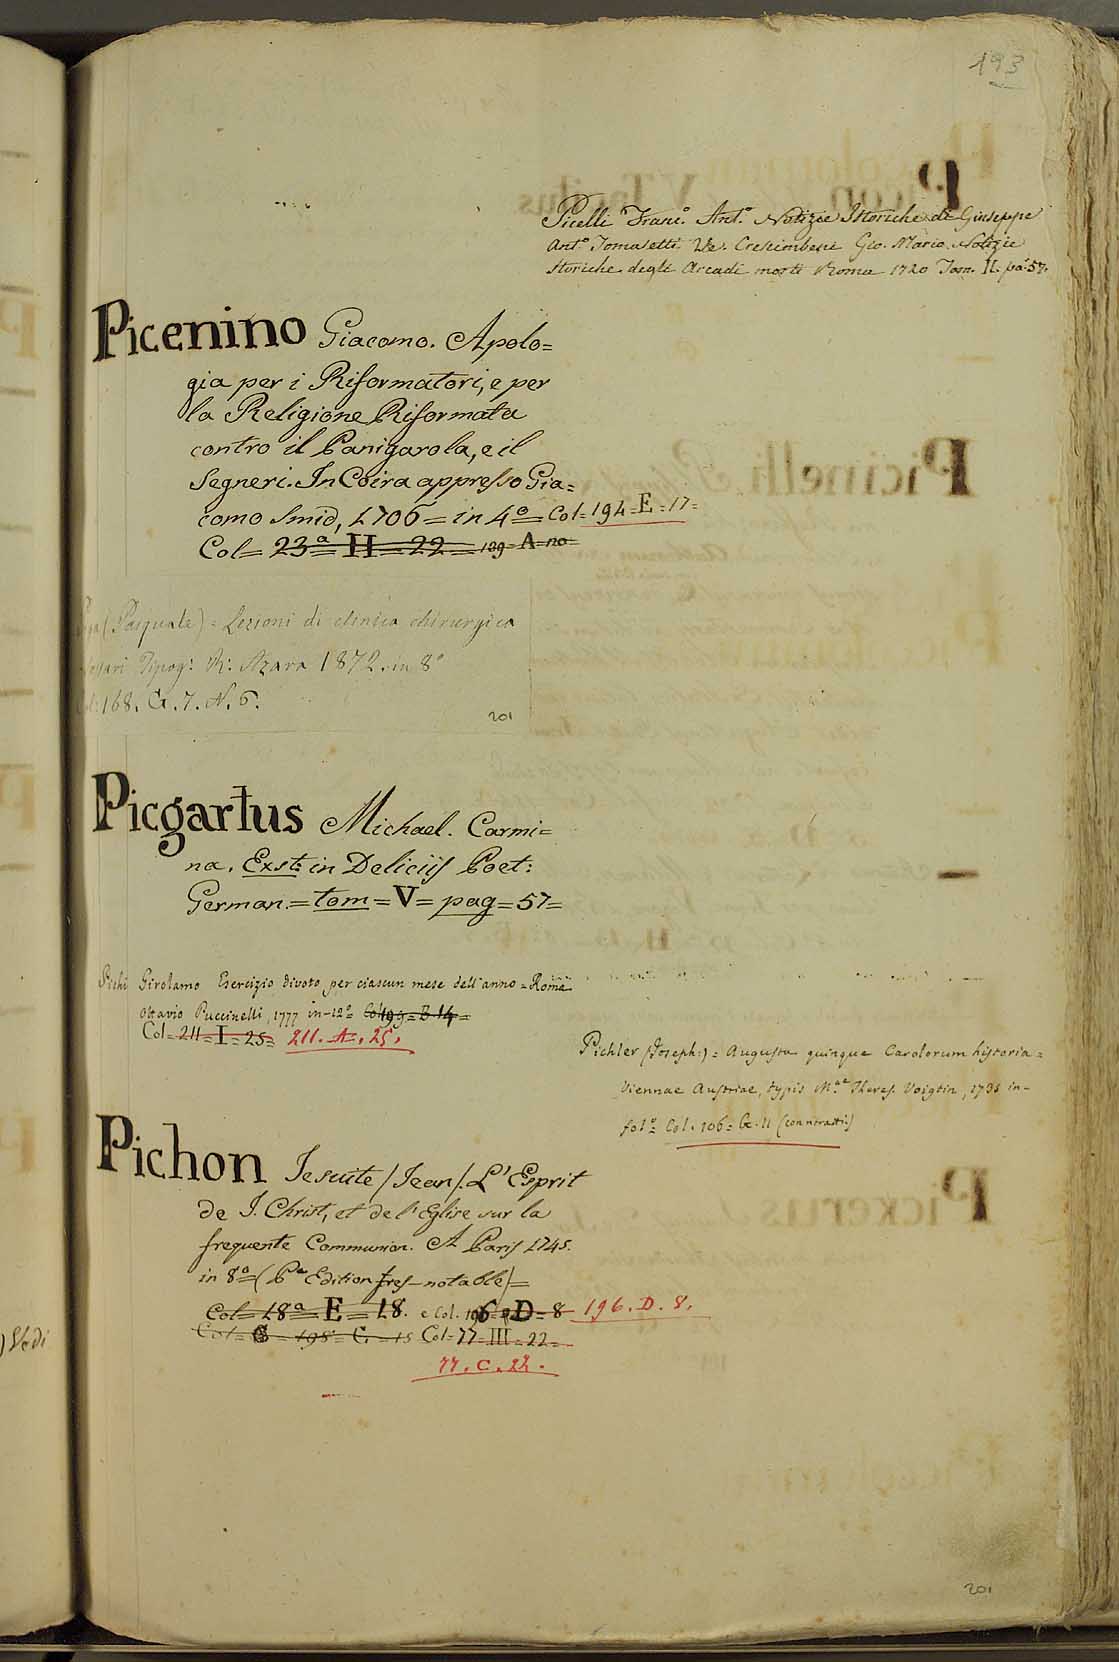 193
Picelli Franc.º Ant.º Notizie Istoriche di Giuseppe
Ant.º Tomasetti Ve. Crescimbeni Gio. Mario Notizie
storiche degli Arcadi morti Roma 1720 Tom. II. pa. 57.
Picenino Giacomo. Apolo=
gia per i Riformatori, e per
la Religione Riformata
contro il Panigarola, e il
Segneri. In Coira appresso Gia=
como Smid, 1706 = in 4º = Col = 194 = E = 17 =
Col = 23ª = H = 22 = 199 = A = 20 =
(Pasquale) = Lezioni di clinica chirurgica
Tipog: A: Azara 1872. in 8º
168. G. 7. N. 6.
201
Picgartus Michael. Carmi=
na. Exst: in Deliciis Poet:
German. = tom = V = pag = 57 =
Pichi Girolamo Esercizio divoto per ciascun mese dell'anno = Roma
Ottavio Puccinelli, 1777 in-12º = Col 199 = B 14 =
Col = 211 = I = 25 = 211. A. 25.
Pichler (Joseph:) = Augusta quinque Carolorum historia =
Viennae Austriae, typis M.ae Theres. Voigtin, 1735 in-
folº = Col. 106 = G. 11 (con ritratti)
Pichon Jesuite / Jean /. L'Esprit
de J. Christ, et de l'Eglise sur la
frequente Communion. A Paris 1745.
in 8º = (Pª Edition tres-notable) =
Col = 18ª = E = 18. e Col. 196 = D = 8 196. D. 8.
Col = 198 = C. = 15 Col = 77 = III = 22 =
77. C. 22.
201